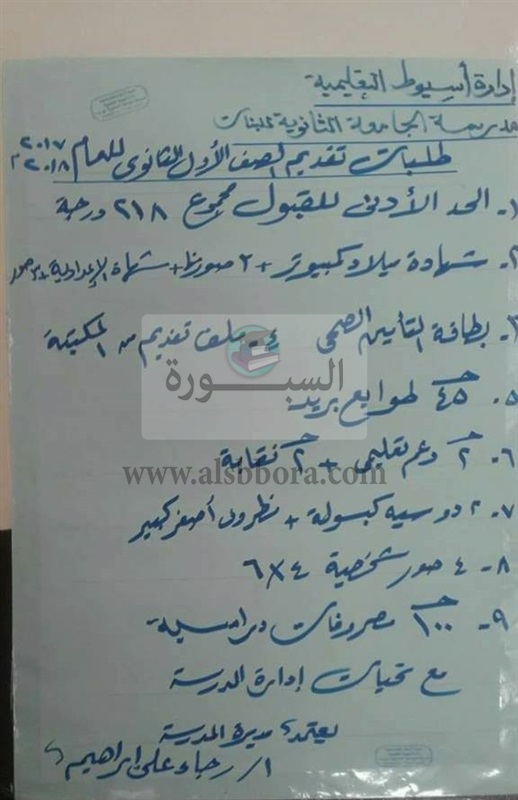 إدارة أسيوط التعليمية
مدرسة الجامعة الثانوية بنات
طلبات تقديم الصف الأول الثانوى للعام ٢٠١٧ / ٢٠١٨ م
١- الحد الأدنى للقبول مجموع ٢١٨ درجة
٢- شهادة ميلاد كمبيوتر + ٢ صورتها + شهادة الإعدادية + ٣ صور
٣- بطاقة التأمين الصحى ٤- ملف تقديم من المكتبة
السبورة
٥- ٤٥ جـ طوابع بريد
٦- ٢ جـ دعم تعليمى + ٢ جـ نقابة
www.alsbbora.com
٧- ٢ دوسيه كبسولة + ظرف أصفر كبير
٨- ٤ صور شخصية ٤×٦
٩- ١٠٠ جـ مصروفات دراسية
مع تحيات إدارة المدرسة
يعتمد، مديرة المدرسة
أ/ رجاء على ابراهيم